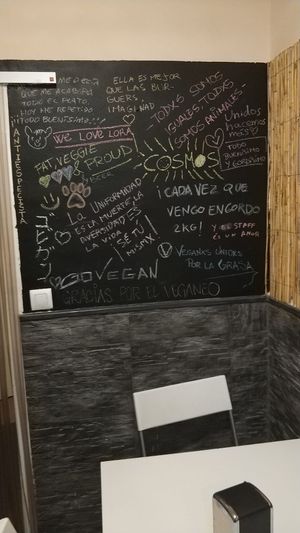 ME PEDÍ
QUE ME ACABARÍA
TODO EL PLATO.
HOY ME REPETIDO
¡¡TODO BUENÍSIMO!!
ELLA ES MEJOR
QUE LAS BUR-
GUERS,
IMAGINAD
TODXS SOMOS
IGUALES, TODXS
SOMOS ANIMALES
Unidos
hacemos
más
ANTIESPECISTA
WE LOVE LORA
FAT, VEGGIE
& PROUD
COSMOS
TODO
BUENISIMO
LA UNIFORMIDAD
ES LA MUERTE, LA
DIVERSIDAD ES
LA VIDA
¡SE TÚ
MISMX!
¡CADA VEZ QUE
VENGO ENGORDO
2KG! Y EL STAFF
ES UN AMOR
GO VEGAN
VEGANXS UNIDXS
POR LA GRASA
GRACIAS POR EL VEGANEO